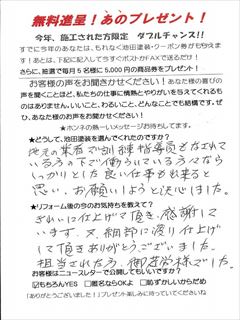 無料進呈！あのプレゼント！
今年、施工された方限定　ダブルチャンス!!
すでに今年のあなたは、もれなく池田塗装・クーポン券がもらえま
す！あとは、下記に記入して今すぐポストかFAXで送るだけ！
さらに、抽選で毎月5名様に5,000円の商品券をプレゼント！
お客様の声をお聞かせください！あなた様の喜びの
声を聞くことほど、私たちの仕事に情熱とやりがいを与えてくれる
ものはありません。いいこと、わるいこと、どんなことでも結構です。ぜ
ひ、あなたの声をお聞かせください！
★ホンネの熱～いメッセージお待ちしてます。
★どうして、池田塗装を選んでくれたのですか？
地元の業者で訓練指導員をなされて
いる方の下で働らいている方々なら
しっかりとした良い仕事が出来ると
思い、お願いしようと決心しました。
★リフォーム後の今のお気持ちを教えて？
きれいに仕上げて頂き、感謝して
います。又、細部に渡り仕上げ
して頂きありがとうございました。
担当された方、御苦労様でした。
お客様ニュースレターで公開してもいいですか？
☑もちろんYES　□匿名ならOKよ　□恥ずかしいからだめ
「ありがとうございました！」プレゼント楽しみに待っていてくださいね